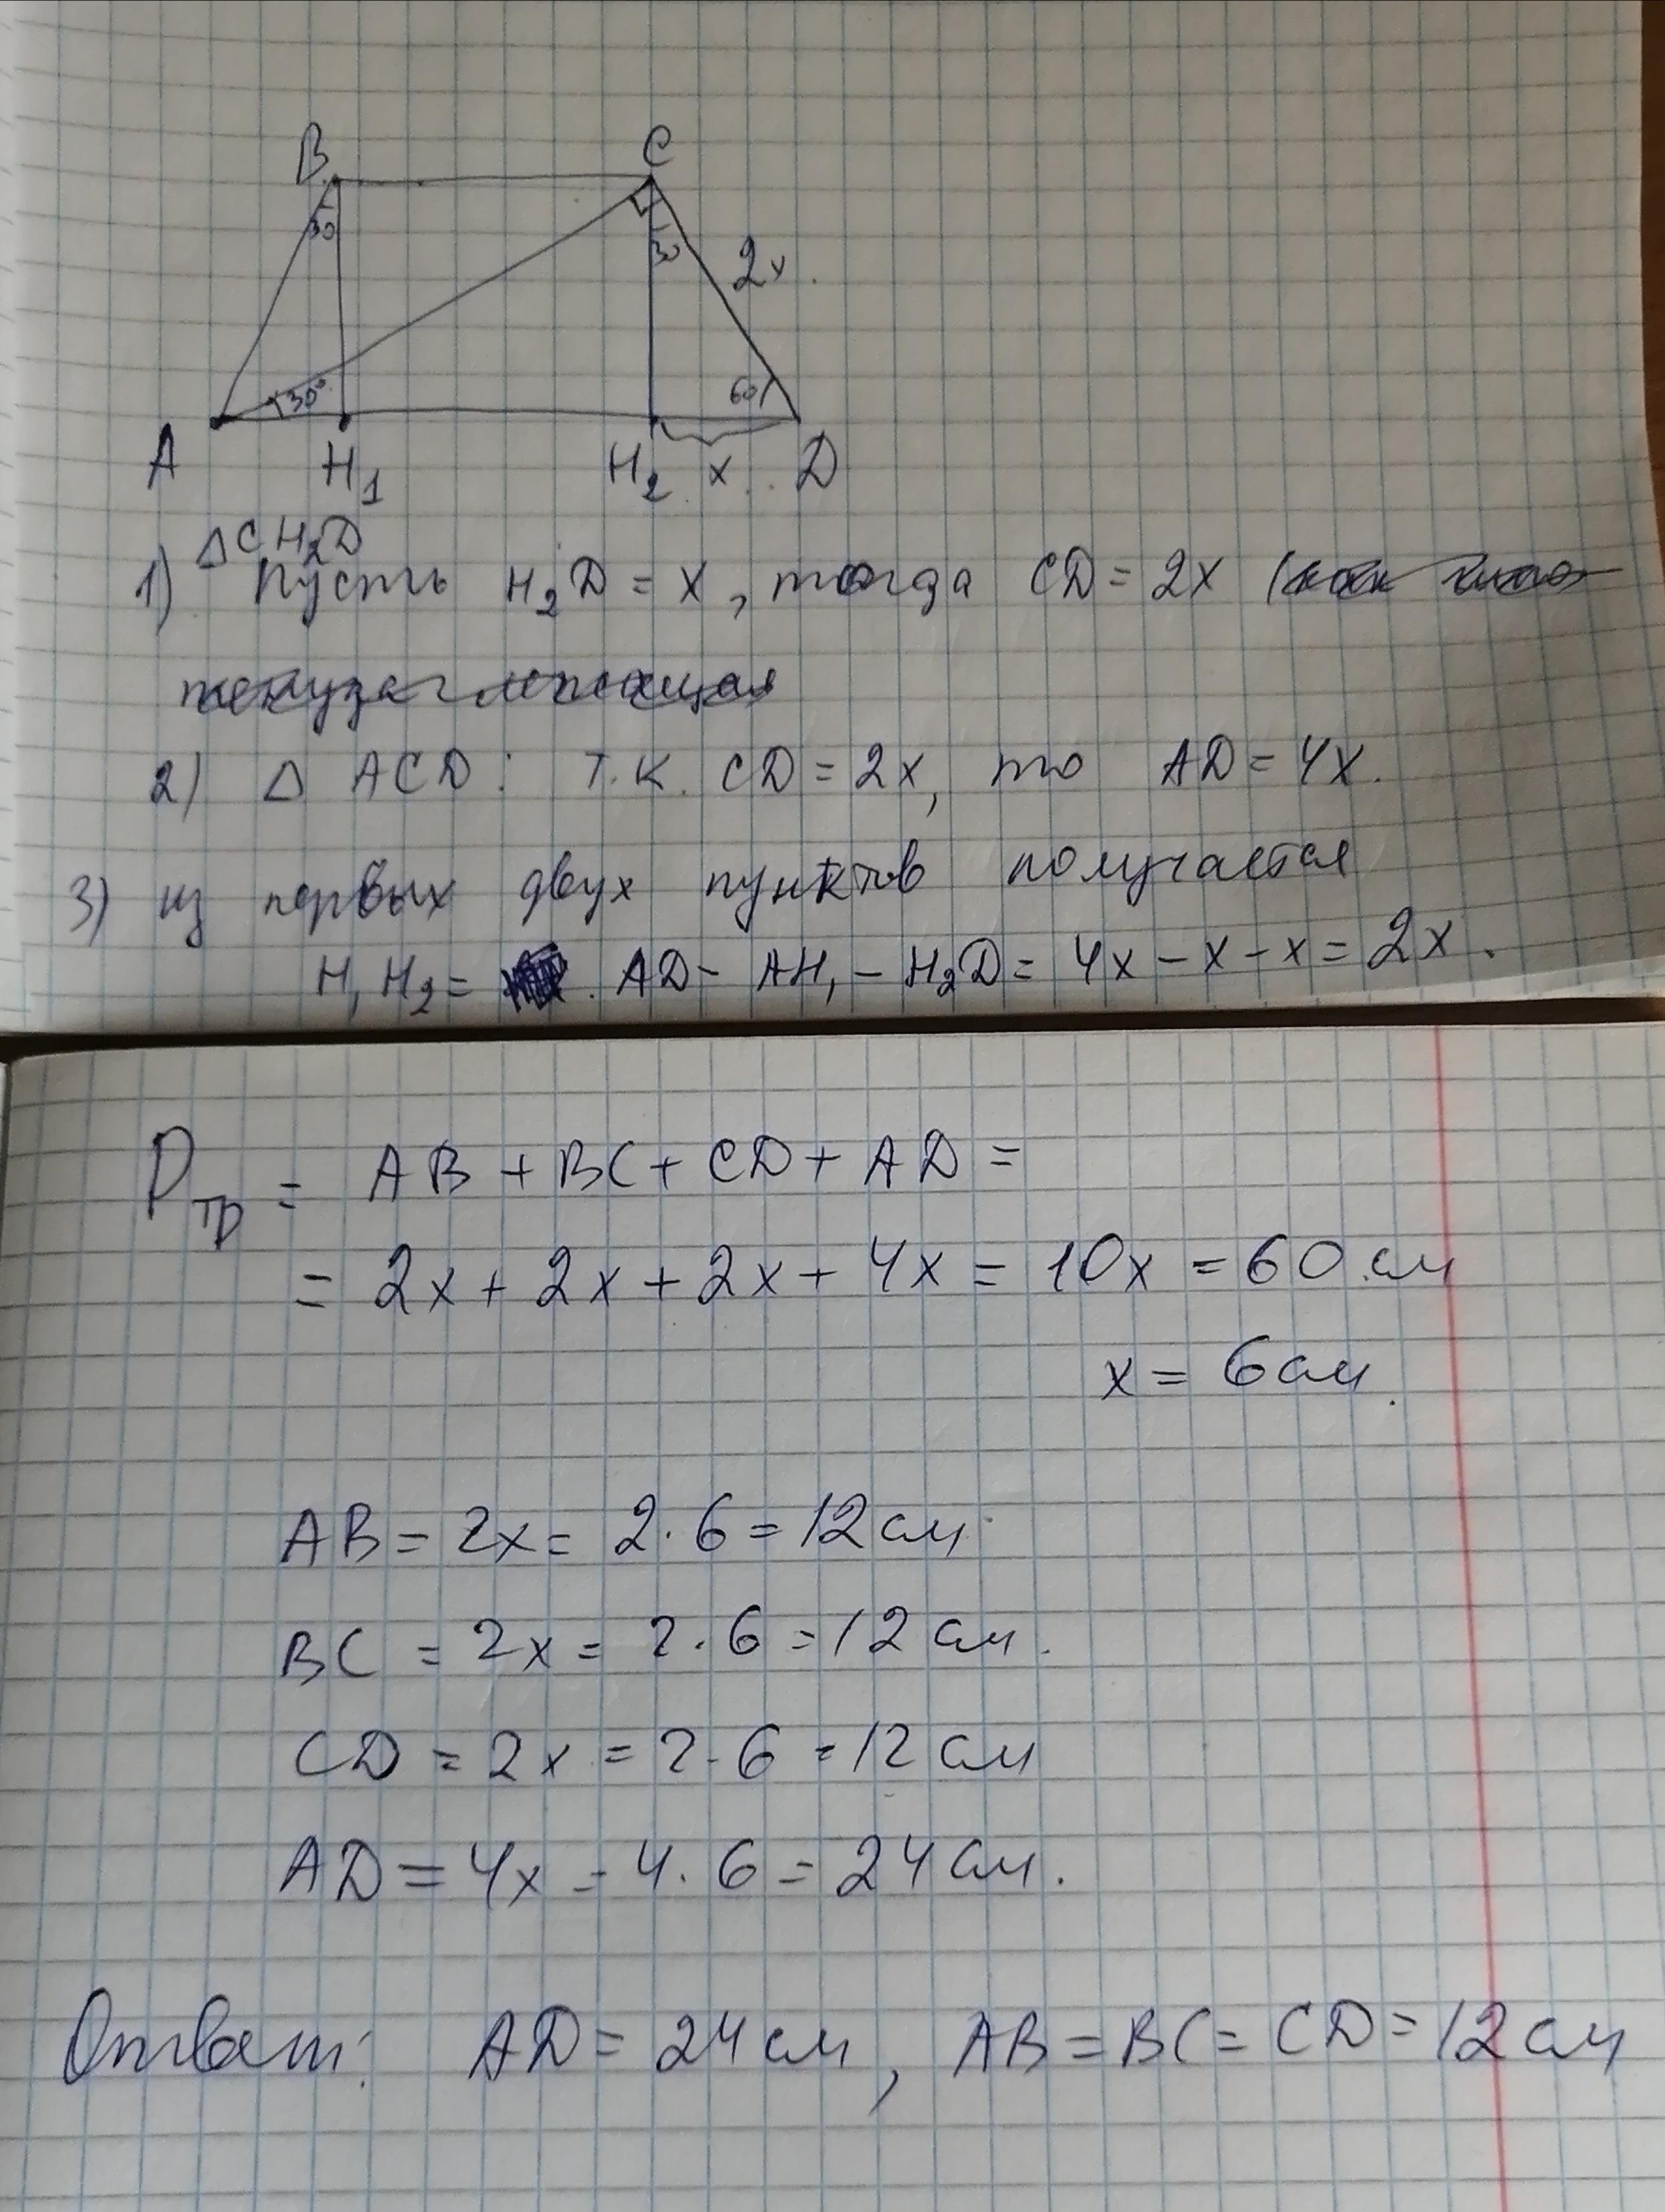 B
C
30
30
2x
30°
60
A
H₁
H₂
x
D
△CH₂D
1) Пусть H₂D = x, тогда CD = 2x (
2) △ ACD: т.к. CD = 2x, то AD = 4x.
3) из первых двух пунктов получается
H₁H₂ = AD - AH₁ - H₂D = 4x - x - x = 2x.
Pтр = AB + BC + CD + AD =
= 2x + 2x + 2x + 4x = 10x = 60 см
x = 6 см.
AB = 2x = 2·6 = 12 см
BC = 2x = 2·6 = 12 см.
CD = 2x = 2·6 = 12 см
AD = 4x = 4·6 = 24 см.
Ответ: AD = 24 см, AB = BC = CD = 12 см